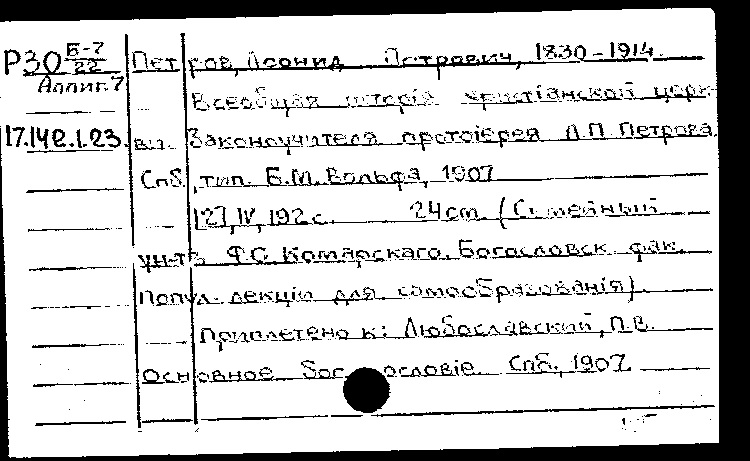 Р30 Б-7/22 Петров, Леонид Петрович, 1830-1914.
Аллиг.7 Всеобщая исторія христіанской церк-
17.142.1.23. ви. Законоучителя протоіерея Л.П. Петрова.
Спб., тип. Б.М. Вольфа, 1907
127, IV, 192 с. 24 см. (Семейный
ун-тъ Ф.С. Комарскаго. Богословск. фак.
Попул. лекціи для самообразованія).
Приплетено к: Любославский, П.В.
Основное богословіе. Спб., 1907.